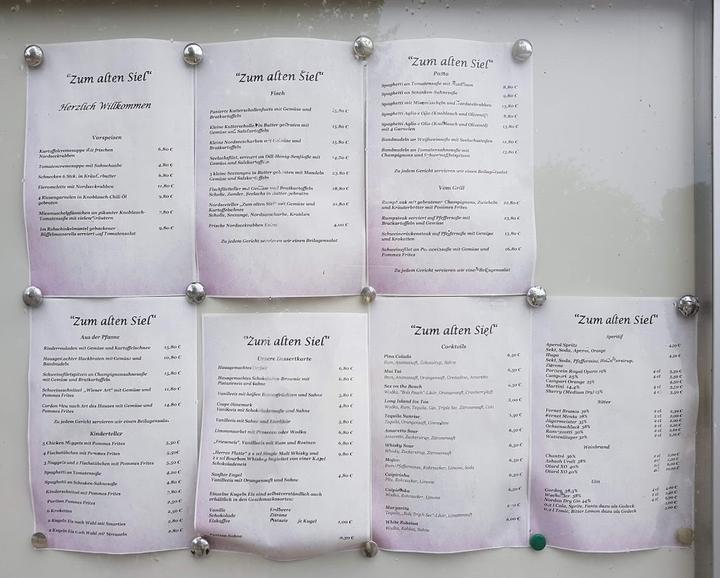 "Zum alten Siel"
Herzlich Willkommen
Vorspeisen
Kartoffelcremesuppe mit frischen
Nordseekrabben 6,80 €
Tomatencremesuppe mit Sahnehaube 4,80 €
Schnecken 6 Stck. in Kräuterbutter 6,80 €
Nordseekrabben 11,80 €
4 Riesengarnelen in Knoblauch-Chili-Öl
gebraten 9,80 €
Miesmuschelpfännchen an pikanter Knoblauch-
Tomatensoße mit vielen Kräutern 7,80 €
Im Rohschinkenmantel gebackener
Büffelmozzarella serviert auf Tomatensalat 9,80 €
"Zum alten Siel"
Fisch
Panierte Kutterschollenfilets mit Gemüse und
Bratkartoffeln
Kleine Kutterscholle in Butter gebraten mit
Gemüse und Salzkartoffeln 15,80 €
Kleine Nordseescholle mit Gemüse und
Bratkartoffeln 15,80 €
Seelachsfilet, serviert an Dill-Honig-Senfsoße mit
Gemüse und Salzkartoffeln 14,20 €
3 kleine Seezungen in Butter gebraten mit Mandeln 23,80 €
Gemüse und Salzkartoffeln
Fischfilletteller mit Gemüse und Bratkartoffeln 18,80 €
Scholle, Zander, Seelachs in Butter gebraten
Nordseeteller „Zum alten Siel" mit Gemüse und 21,80 €
Kartoffelschnee
Scholle, Seezunge, Nordseescholle, Krabben
Frische Nordseekrabben Extra 4,00 €
Zu jedem Gericht servieren wir einen Beilagensalat
"Zum alten Siel"
Pasta
Spaghetti an Tomatensoße mit Basilikum 8,80 €
Spaghetti an Schinken-Sahnesoße 9,80 €
Spaghetti mit Miesmuscheln und Nordseekrabben 13,80 €
Spaghetti Aglio e Olio (Knoblauch und Olivenöl) 8,80 €
Spaghetti Aglio e Olio (Knoblauch und Olivenöl)
mit 4 Garnelen 13,80 €
Bandnudeln an Weißweinsoße mit Seelachsstreifen 11,80 €
Bandnudeln an Tomatensahnesoße mit
Champignons und Schweinefiletspitzen 12,80 €
Zu jedem Gericht servieren wir eine Beilagensalat
Vom Grill
Rumpsteak mit gebratener Champignons, Zwiebeln
und Kräuterbutter mit Pommes Frites
Rumpsteak serviert auf Pfeffersoße mit
Bratkartoffeln und Gemüse
Schweinerückensteak auf Pfeffersoße mit Gemüse
und Kroketten 13,80 €
Schweinefilet an Portweinsoße mit Gemüse und
Pommes Frites 16,80 €
Zu jedem Gericht servieren wir eine Beilagensalat
"Zum alten Siel"
Aus der Pfanne
Rinderrouladen mit Gemüse und Kartoffelschnee 15,80 €
Hausgemachter Hackbraten mit Gemüse und
Bandnudeln 10,80 €
Schweinefiletspitzen an Champignonsahnesoße
mit Gemüse und Bratkartoffeln 15,80 €
Schweineschnitzel „Wiener Art" mit Gemüse und
Pommes Frites 11,80 €
Cordon bleu nach Art des Hauses mit Gemüse und
Pommes Frites 14,80 €
Zu jedem Gericht servieren wir einen Beilagensalat
Kinderteller
5 Chicken Nuggets mit Pommes Frites 5,50 €
4 Fischstäbchen mit Pommes Frites 5,50 €
3 Nuggets und 2 Fischstäbchen mit Pommes Frites 5,50 €
Spaghetti an Tomatensoße 4,20 €
Spaghetti an Schinken-Sahnesoße 4,80 €
Kinderschnitzel mit Pommes Frites 7,80 €
Portion Pommes Frites 2,50 €
6 Kroketten 2,50 €
2 Kugeln Eis nach Wahl mit Smarties 2,80 €
2 Kugeln Eis nach Wahl mit Streuseln 2,80 €
"Zum alten Siel"
Unsere Dessertkarte
Hausgemachtes 6,80 €
Hausgemachtes Schokoladen-Brownie mit 6,80 €
Pistazieneis und Sahne
Vanilleeis mit heißen Sauerkirschen und Sahne 5,80 €
Coupe Dänemark 4,80 €
Vanilleeis mit Schokoladensoße und Sahne
Vanilleeis mit Sahne und Eierlikör 5,80 €
Limonensorbet mit Prosecco oder Wodka 6,80 €
„Frieseneis", Vanilleeis mit Rum und Rosinen 6,80 €
„Herren Platte" 2 x 2cl Single Malt Whisky und
2 x 2cl Bourbon Whiskey begleitet von einer Kugel
Schokoladeneis 9,80 €
Sanfter Engel 4,80 €
Vanilleeis mit Orangensaft und Sahne
Einzelne Kugeln Eis sind selbstverständlich auch
erhältlich in den Geschmackssorten:
Vanille Erdbeere
Schokolade Zitrone
Eiskaffee Pistazie je Kugel 1,00 €
Portion Sahne 0,50 €
"Zum alten Siel"
Cocktails
Pina Colada 6,50 €
Rum, Ananassaft, Kokossirup, Sahne
Mai Tai 6,50 €
Rum, Ananassaft, Orangensaft, Grenadine, Amaretto
Sex on the Beach 6,50 €
Wodka, "Bols Peach" Likör, Orangensaft, Cranberrysaft
Long Island Ice Tea 8,00 €
Wodka, Rum, Tequila, Gin, Triple Sec, Zitronensaft, Cola
Tequila Sunrise
Tequila, Orangensaft, Grenadine
Amaretto Sour 6,50 €
Amaretto, Zuckersirup, Zitronensaft
Whisky Sour 6,50 €
Whisky, Zuckersirup, Zitronensaft
Mojito 6,50 €
Rum, Pfefferminze, Rohrzucker, Limone, Soda
Caipirinha 6,50 €
Pitu, Rohrzucker, Limone
Caipiroska 6,50 €
Wodka, Rohrzucker, Limone
Margarita 6,50 €
Tequila, "Bols Triple Sec" Likör, Limonensaft
White Russian 6,00 €
Wodka, Kahlua, Sahne
"Zum alten Siel"
Aperitif
Aperol Spritz 4,50 €
Sekt, Soda, Aperol, Orange
Hugo 4,50 €
Sekt, Soda, Pfefferminz, Holundersirup,
Zitrone
Portwein Royal Oporto 19%
Campari 25%
Campari Orange 25%
Martini 14,4%
Sherry (Medium Dry) 15%
Bitter
Fernet Branca 39%
Fernet Menta 28%
Jägermeister 35%
Ochsenschluck 38%
Ramazzotti 30%
Wattenläuper 32%
Weinbrand
Chantré 36%
Asbach Uralt 38%
Otard VO 40%
Otard XO 40%
Gin
Gordon 38,5%
Wacholder 38%
Nordas Dry Gin 44%
0,2 l Cola, Sprite, Fanta dazu als Gedeck
0,2 l Tonic, Bitter Lemon dazu als Gedeck